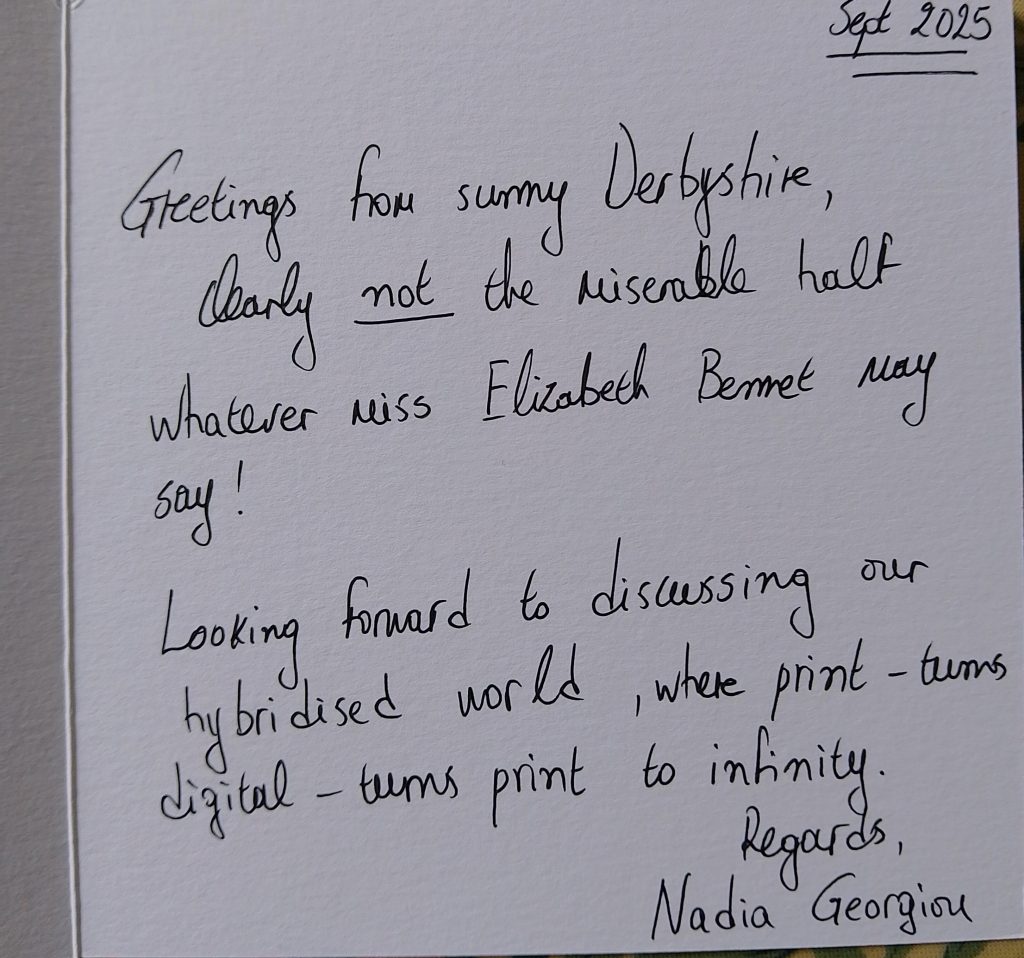 Sept 2025
Greetings from sunny Derbyshire,
Clearly not the miserable half
whatever miss Elizabeth Bennet may
say!
Looking forward to discussing our
hybridised world, where print-turns
digital-turns print to infinity.
Regards,
Nadia Georgiou